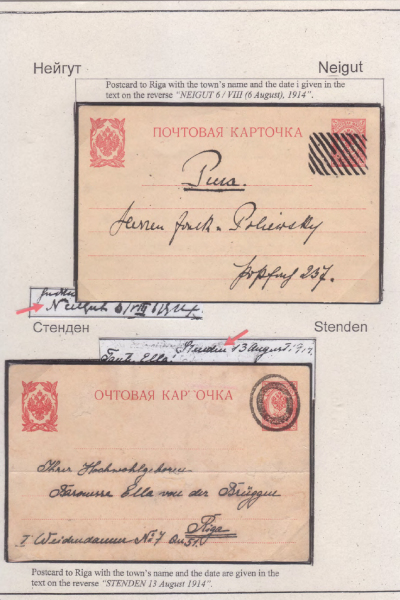 Нейгут Neigut
Postcard to Riga with the town's name and the date i given in the
text on the reverse "NEIGUT 6 / VIII (6 August), 1914".
ПОЧТОВАЯ КАРТОЧКА
Рига.
Herren Jonck u. Poliewsky
Postfach 237.
Neigut 6/VIII 1914
Стенден Stenden
Stenden 13 August. 1914.
Tante Ella!
ОЧТОВАЯ КАРТОЧКА
Ihrer Hochwohlgeboren
Baronesse Ella von der Brüggen
Riga
I Weidendamm No 7
Postcard to Riga with the town's name and the date are given in the
text on the reverse "STENDEN 13 August 1914".